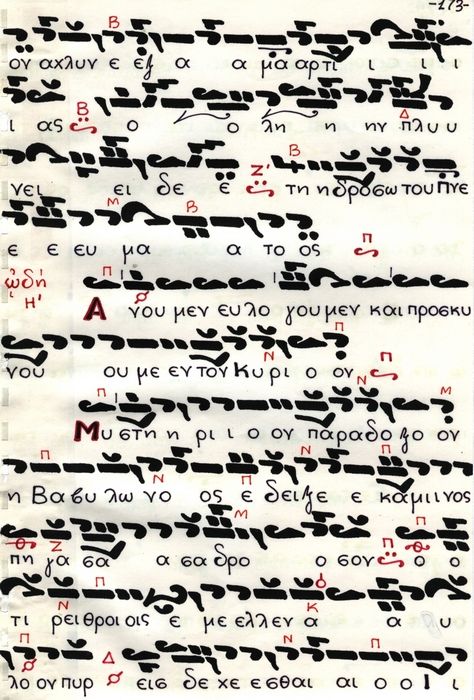 -173-
ον αχλυν ε εξ α α μα αρτι ι ι
ι ας ο ο λη η ην πλυυ
νει ει δε ε τη η δροσω του Πνε
ε ε ευ μα α το ος
ᾠδή Η' Α νου μεν ευ λο γου μεν και προσκυ
νου ου με εν τον Κυρι ο ον
Μυ στη η ρι ι ο ον παραδο ξο ον
η Βα βυ λω νο ος ε δειξε ε κα μιινος
πη γα σα α σα δρο ο σον ο ο
τι ρει θροι οις ε με ελλεν α α υ
λο ον πυρ εις δε χε εσθαι αι ο ο Ι ι